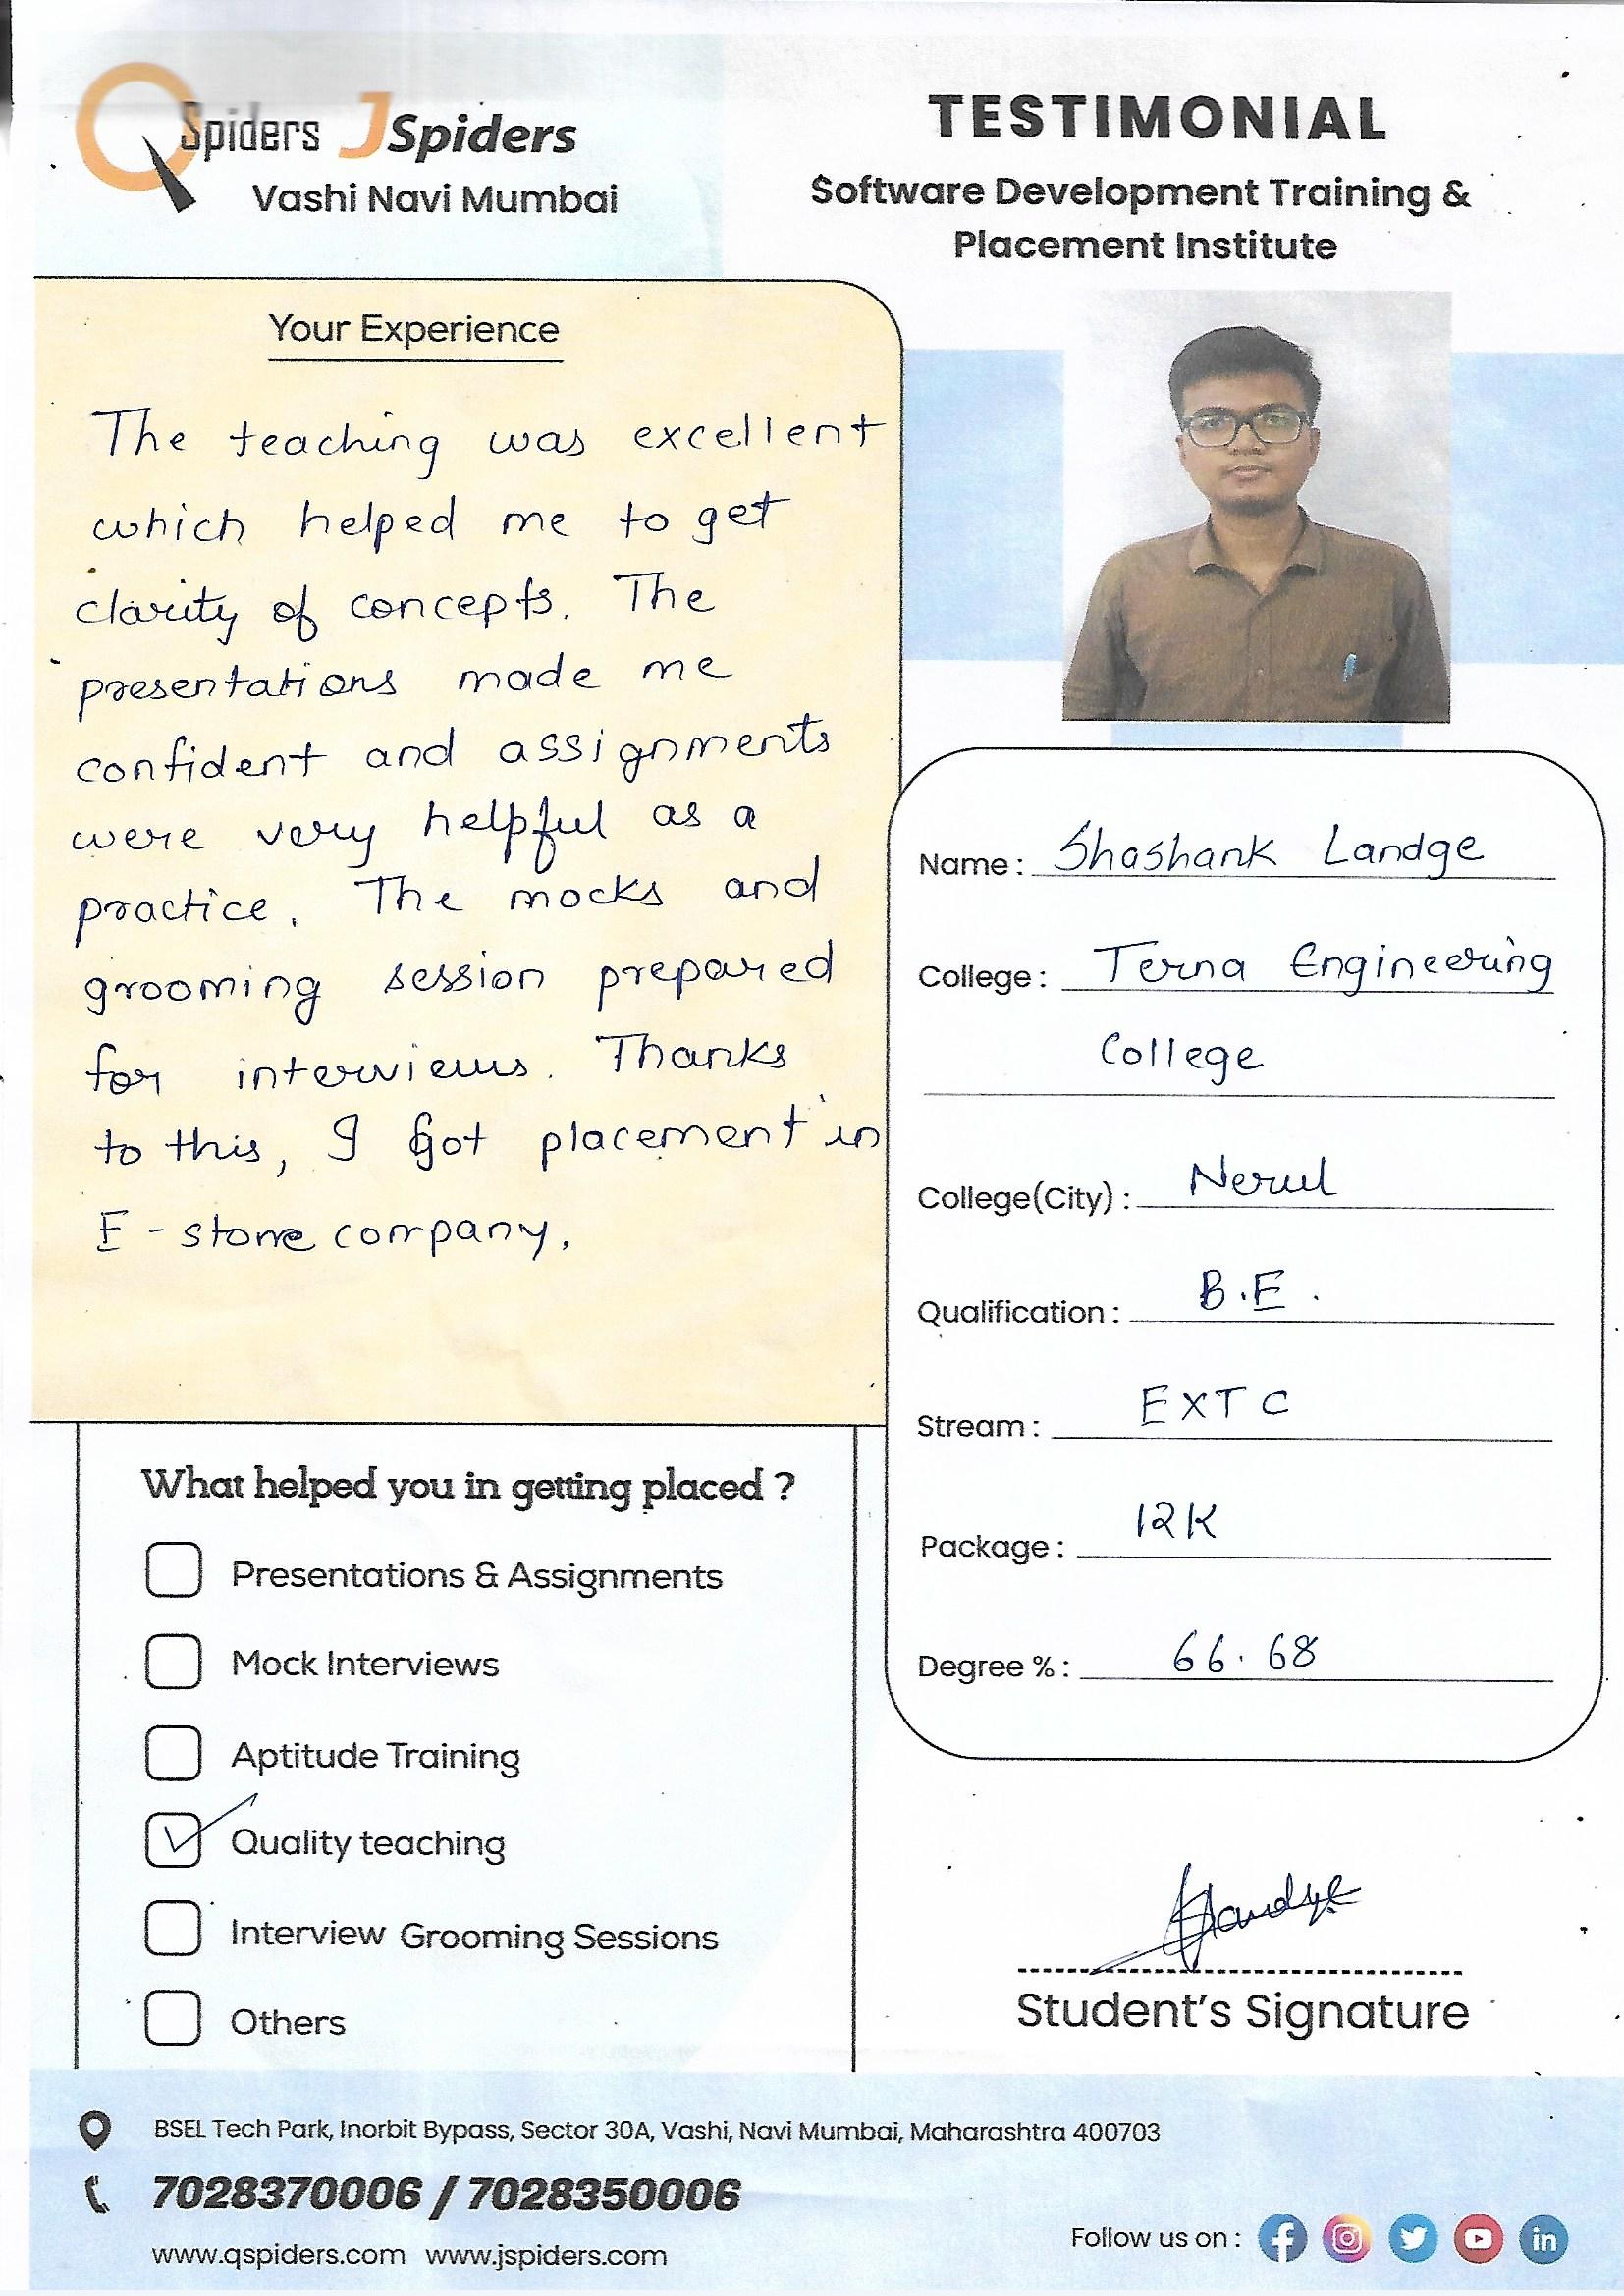 QSpiders JSpiders
Vashi Navi Mumbai
TESTIMONIAL
Software Development Training &
Placement Institute
Your Experience
The teaching was excellent
which helped me to get
clarity of concepts. The
presentations made me
confident and assignments
were very helpful as a
practice. The mocks and
grooming session prepared
for interviews. Thanks
to this, I Got placement in
E-store company.
Name : Shashank Landge
College : Terna Engineering
College
College(City) : Nerul
Qualification : B.E.
Stream : EXTC
Package : 12K
Degree % : 66.68
What helped you in getting placed ?
Presentations & Assignments
Mock Interviews
Aptitude Training
Quality teaching
Interview Grooming Sessions
Others
Landge
Student's Signature
BSEL Tech Park, Inorbit Bypass, Sector 30A, Vashi, Navi Mumbai, Maharashtra 400703
7028370006 / 7028350006
www.qspiders.com www.jspiders.com
Follow us on :